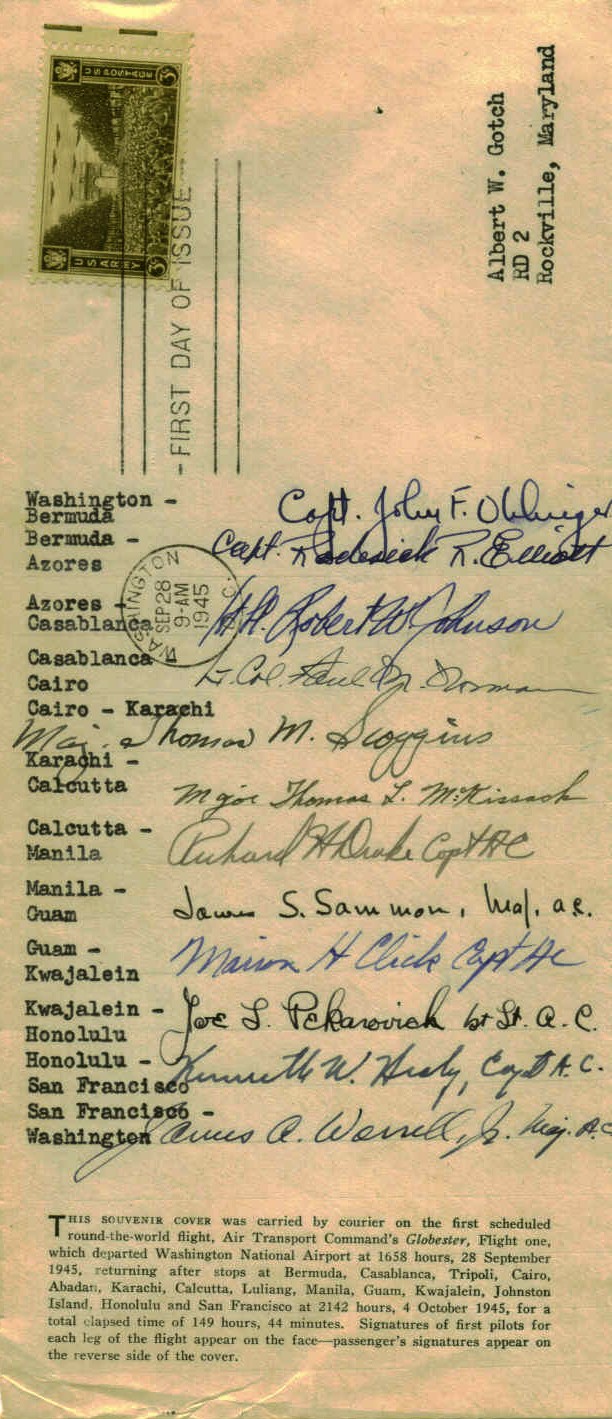 U S POSTAGE
3¢
U S ARMY
3¢
Albert W. Gotch
RD 2
Rockville, Maryland
- FIRST DAY OF ISSUE -
WASHINGTON D. C.
SEP 28
9-AM
1945
Washington -
Bermuda
Capt. John F. Ohlinger
Bermuda -
Azores
Capt. Roderick R. Elliott
Azores -
Casablanca
Robert W Johnson
Casablanca -
Cairo
Lt. Col. Paul M. Norman
Cairo - Karachi
Maj. Thomas M. Scoggins
Karachi -
Calcutta
Major Thomas L. McKissack
Calcutta -
Manila
Richard H Drake Capt AC
Manila -
Guam
James S. Sammon, Maj. a.c.
Guam -
Kwajalein
Marion H Click Capt AC
Kwajalein -
Honolulu
Joe L. Pekarovich 1st Lt. A.C.
Honolulu -
San Francisco
Kenneth W. Healy, Capt A.C.
San Francisco -
Washington
James A. Worrell, Jr. Maj. A.C
THIS SOUVENIR COVER was carried by courier on the first scheduled
round-the-world flight, Air Transport Command's Globester, Flight one,
which departed Washington National Airport at 1658 hours, 28 September
1945, returning after stops at Bermuda, Casablanca, Tripoli, Cairo,
Abadan, Karachi, Calcutta, Luliang, Manila, Guam, Kwajalein, Johnston
Island, Honolulu and San Francisco at 2142 hours, 4 October 1945, for a
total elapsed time of 149 hours, 44 minutes. Signatures of first pilots for
each leg of the flight appear on the face—passenger's signatures appear on
the reverse side of the cover.